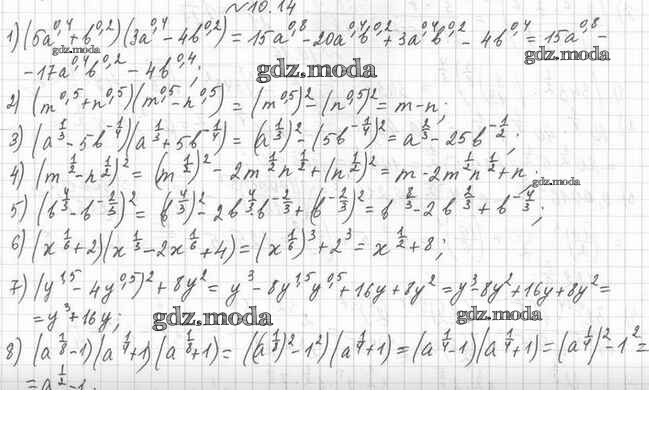 №10.14
1) (5a^{0,4} + b^{0,2})(3a^{0,4} - 4b^{0,2}) = 15a^{0,8} - 20a^{0,4}b^{0,2} + 3a^{0,4}b^{0,2} - 4b^{0,4} = 15a^{0,8} -
gdz.moda gdz.moda gdz.moda
- 17a^{0,4}b^{0,2} - 4b^{0,4};
2) (m^{0,5} + n^{0,5})(m^{0,5} - n^{0,5}) = (m^{0,5})^2 - (n^{0,5})^2 = m - n;
3) (a^{1/3} - 5b^{-1/4})(a^{1/3} + 5b^{-1/4}) = (a^{1/3})^2 - (5b^{-1/4})^2 = a^{2/3} - 25b^{-1/2};
4) (m^{1/2} - n^{1/2})^2 = (m^{1/2})^2 - 2m^{1/2}n^{1/2} + (n^{1/2})^2 = m - 2m^{1/2}n^{1/2} + n;
gdz.moda
5) (b^{4/3} - b^{-2/3})^2 = (b^{4/3})^2 - 2b^{4/3}b^{-2/3} + (b^{-2/3})^2 = b^{8/3} - 2b^{2/3} + b^{-4/3};
6) (x^{1/6} + 2)(x^{1/3} - 2x^{1/6} + 4) = (x^{1/6})^3 + 2^3 = x^{1/2} + 8;
7) (y^{1,5} - 4y^{0,5})^2 + 8y^2 = y^3 - 8y^{1,5}y^{0,5} + 16y + 8y^2 = y^3 - 8y^2 + 16y + 8y^2 =
= y^3 + 16y;
gdz.moda gdz.moda
8) (a^{1/8} - 1)(a^{1/4} + 1)(a^{1/8} + 1) = ((a^{1/8})^2 - 1^2)(a^{1/4} + 1) = (a^{1/4} - 1)(a^{1/4} + 1) = (a^{1/4})^2 - 1^2 =
= a^{1/2} - 1.